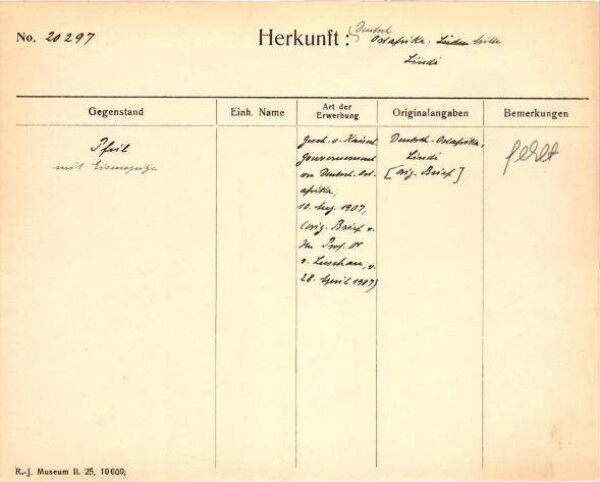 No. 20297
Herkunft: Deutsch
Ostafrika.
Lindi
Gegenstand
Einh. Name
Art der
Erwerbung
Originalangaben
Bemerkungen
Pfeil
mit Eisenspitze
Gesch. v. Kaiserl.
Gouvernement
von Deutsch-Ost-
afrika,
10. Aug. 1907,
(orig. Brief v.
Prof. Dr
v. Luschan, v.
28. April 1907)
Deutsch-Ostafrika,
Lindi
[Orig. Brief]
fehlt
R.-J. Museum II. 25, 10000;